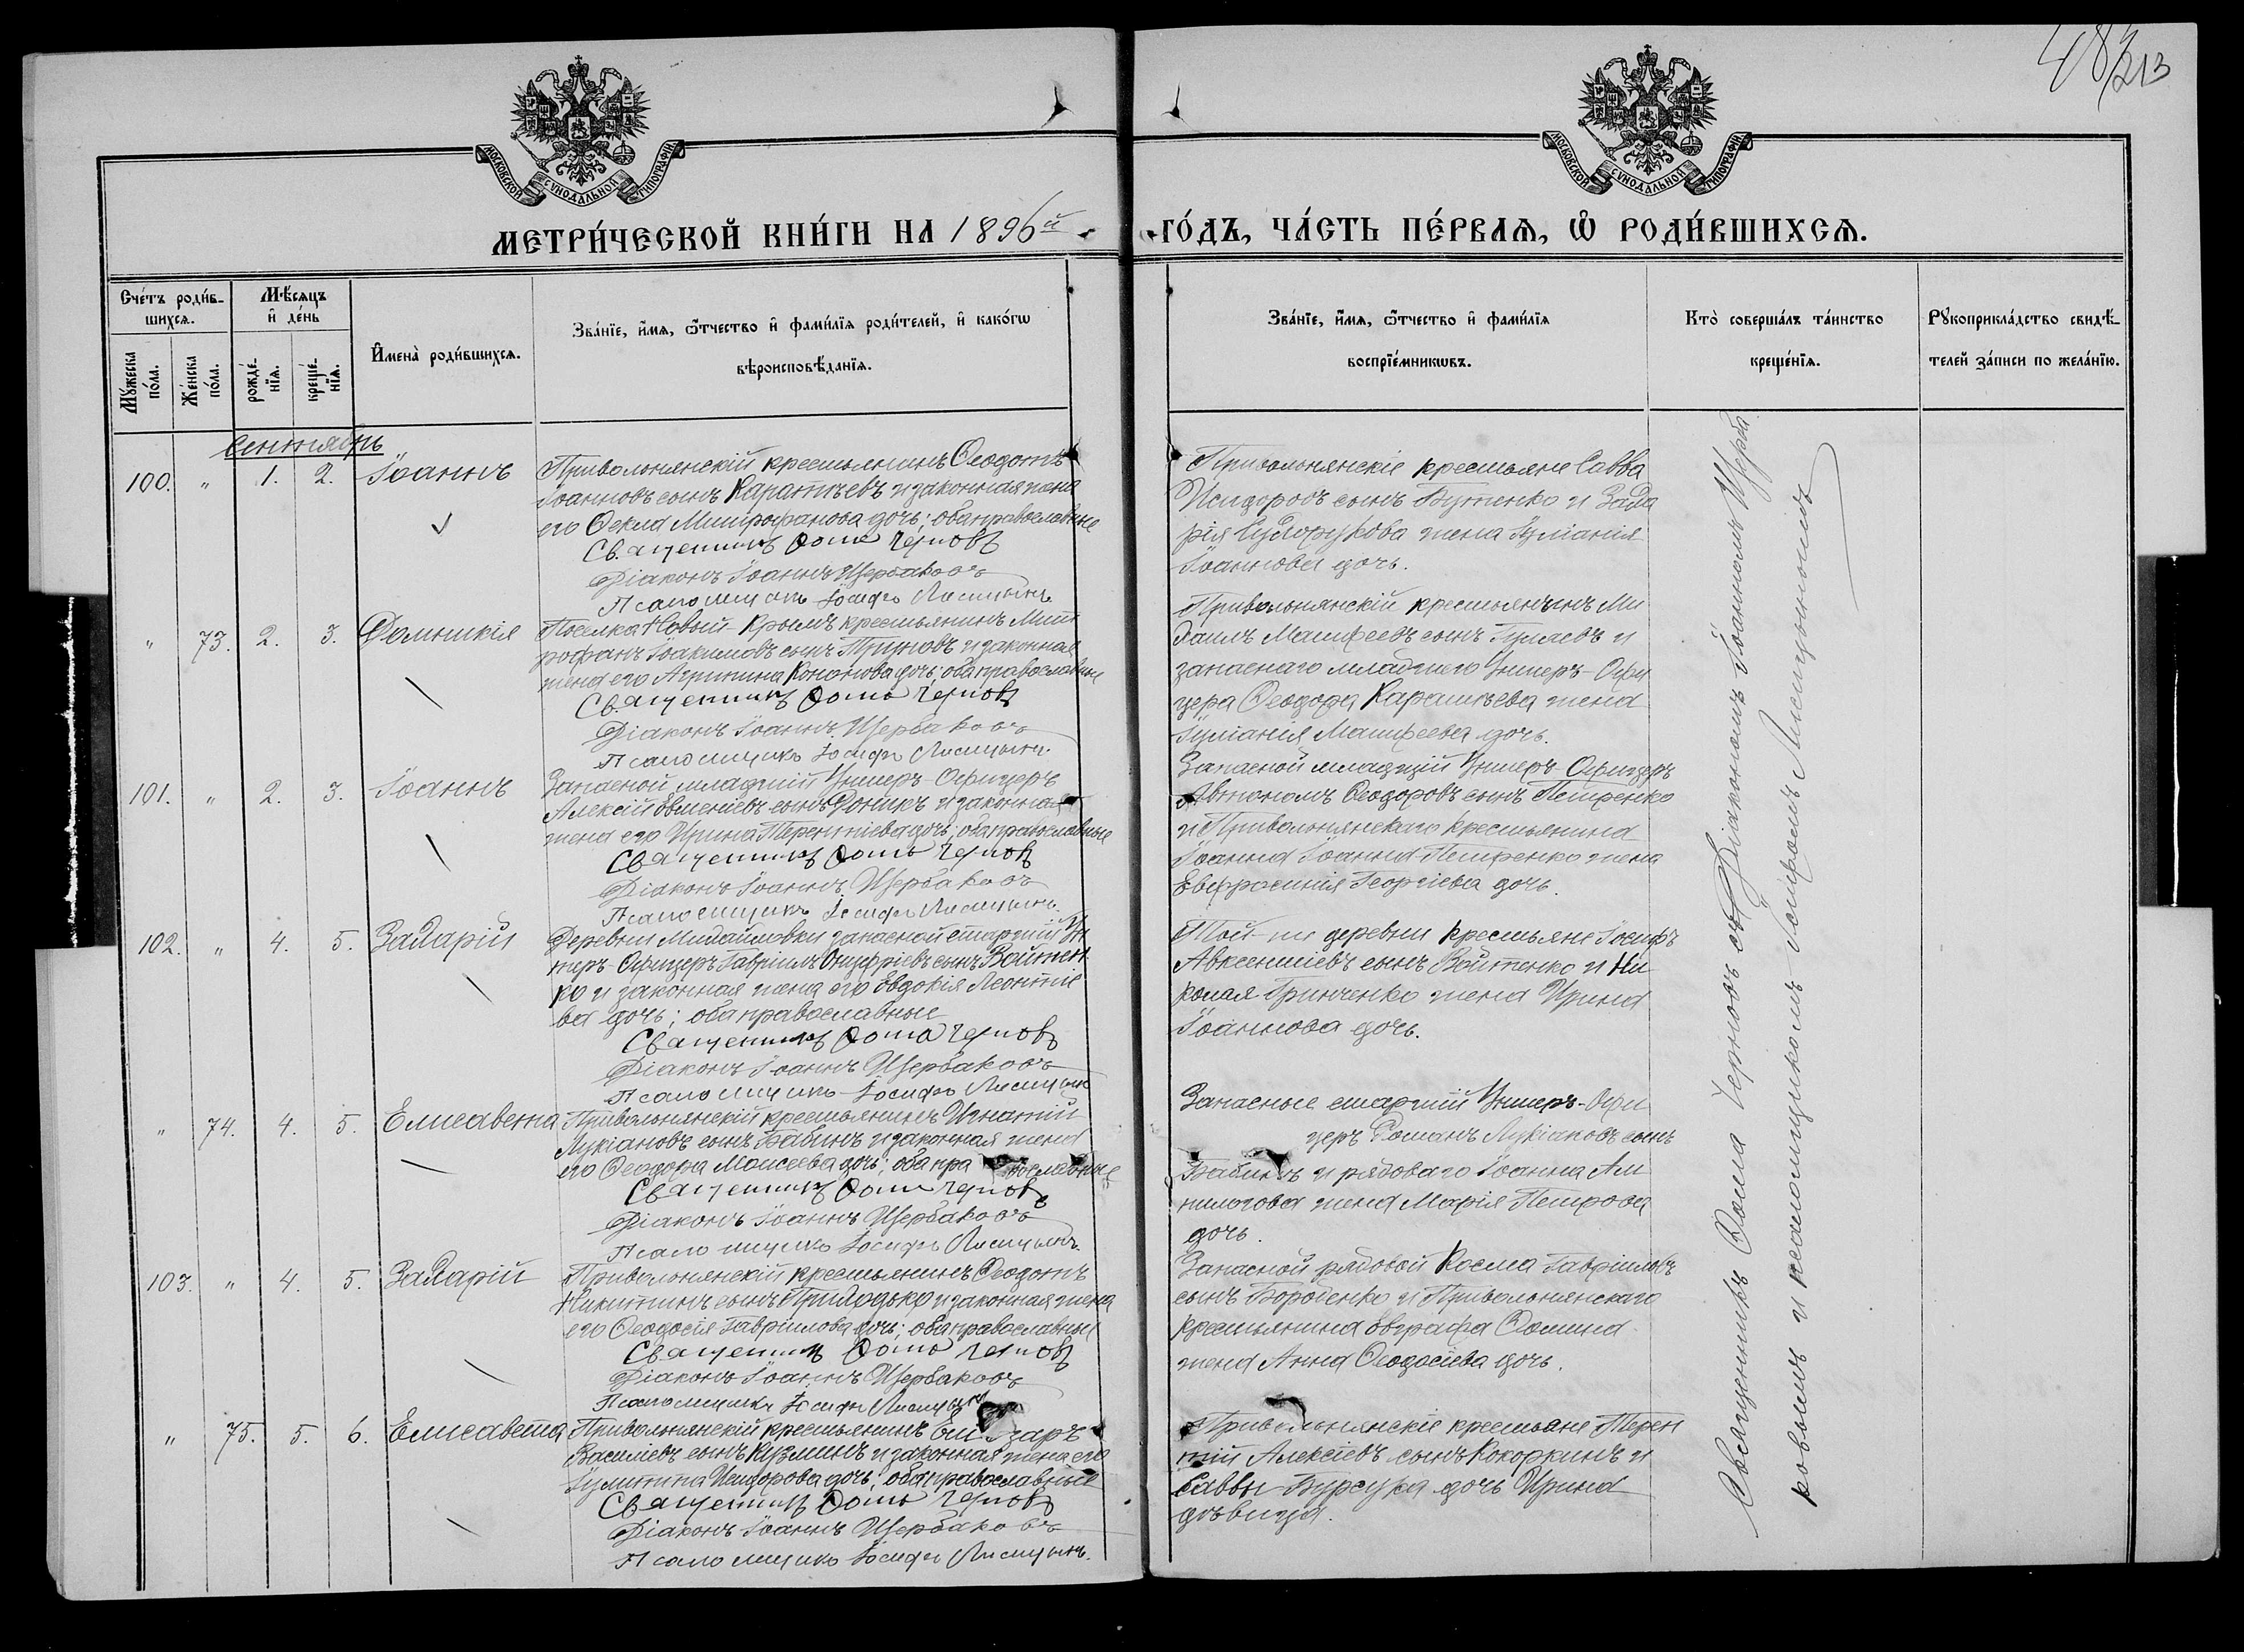 48
213
МОСКОВСКОЙ СѴНОДАЛЬНОЙ ТИПОГРАФІИ
МОСКОВСКОЙ СѴНОДАЛЬНОЙ ТИПОГРАФІИ
МЕТРИ́ЧЕСКОЙ КНИ́ГИ НА 1896й
ГО́ДЪ, ЧА́СТЬ ПЕ́РВАѦ, Ѡ҆ РОДИ́ВШИХСѦ.
Сче́тъ роди́в-
шихсѧ.
Мѣ́сѧцъ
и҆ де́нь
И҆мена̀ роди́вшихсѧ.
Зва́нїе, и҆́мѧ, ѻ҆́тчество и҆ фами́лїѧ роди́телей, и҆ како́гѡ
вѣроисповѣ́данїѧ.
Мꙋ́жеска
по́ла.
Же́нска
по́ла.
рожде́-
нїѧ.
креще́-
нїѧ.
Зва́нїе, и҆́мѧ, ѻ҆́тчество и҆ фами́лїѧ
воспрїе́мникѡвъ.
Кто̀ соверша́лъ та́инство
креще́нїѧ.
Рꙋкоприкла́дство свидѣ́-
телей за́писи по жела́нїю.
Сентябрь
100. " 1. 2. Іоаннъ
Привольнянскій крестьянинъ Ѳеодотъ
Іоанновъ сынъ Каратѣевъ и законная жена
его Ѳекла Митрофанова дочь; оба православные
Священникъ Ѳома Черновъ
Діаконъ Іоаннъ Щербаковъ
Псаломщикъ Іосифъ Лисицынъ
Привольнянскіе крестьяне Савва
Исидоровъ сынъ Бутенко и Заха
рія жена Іуліанія
Іоаннова дочь.
" 73. 2. 3. Домникія
Поселка Новый Крымъ крестьянинъ Мит
рофанъ Іоакимовъ сынъ и законная
жена его Агрипина Кононова дочь; оба православные
Священникъ Ѳома Черновъ
Діаконъ Іоаннъ Щербаковъ
Псаломщикъ Іосифъ Лисицынъ
Привольнянскій крестьянинъ Ми
хаилъ Матфеевъ сынъ Гуляевъ и
запаснаго младшего Унтеръ-Офи
цера Ѳеодора Каратѣева жена
Іуліанія Матфеева дочь.
101. " 2. 3. Іоаннъ
Запасной младшій Унтеръ-Офицеръ
Алексій Евменіевъ сынъ и законная
жена его Ирина Терентіева дочь; оба православные
Священникъ Ѳома Черновъ
Діаконъ Іоаннъ Щербаковъ
Псаломщикъ Іосифъ Лисицынъ
Запасной младшій Унтеръ-Офицеръ
Автономъ Ѳеодоровъ сынъ Петренко
и Привольнянскаго крестьянина
Іоанна Іоанна Петренко жена
Евфросинія Георгіева дочь.
102. " 4. 5. Захарій
Деревни Михайловки запасной старшій Ун
теръ-Офицеръ Гавріилъ Онуфріевъ сынъ Войтен
ко и законная жена его Евдокія Леонтіе
ва дочь; оба православные
Священникъ Ѳома Черновъ
Діаконъ Іоаннъ Щербаковъ
Псаломщикъ Іосифъ Лисицынъ
Той-же деревни крестьяне Іосифъ
Авксентіевъ сынъ Войтенко и Ни
колая Гринченко жена Ирина
Іоаннова дочь.
" 74. 4. 5. Елисавета
Привольнянскій крестьянинъ Игнатій
Лукіановъ сынъ Бабинъ и законная жена
его Ѳеодора Моисеева дочь; оба православные
Священникъ Ѳома Черновъ
Діаконъ Іоаннъ Щербаковъ
Псаломщикъ Іосифъ Лисицынъ
Запасные старшій Унтеръ-Офи
церъ Романъ Лукіановъ сынъ
Бабинъ и рядоваго Іоанна
жена Марія Петрова
дочь.
103. " 4. 5. Захарій
Привольнянскій крестьянинъ Ѳеодотъ
Никитинъ сынъ Приходько и законная жена
его Ѳеодосія Гавріилова дочь; оба православные
Священникъ Ѳома Черновъ
Діаконъ Іоаннъ Щербаковъ
Псаломщикъ Іосифъ Лисицынъ
Запасной рядовой Косма Гавріиловъ
сынъ Бороденко и Привольнянскаго
крестьянина Евграфа Ѳомина
жена Анна Ѳеодосіева дочь.
" 75. 5. 6. Елисавета
Привольнянскій крестьянинъ
Василіевъ сынъ Кузминъ и законная жена его
Іулитта Исидорова дочь; оба православные
Священникъ Ѳома Черновъ
Діаконъ Іоаннъ Щербаковъ
Псаломщикъ Іосифъ Лисицынъ
Привольнянскіе крестьяне Терен
тій Алексіевъ сынъ Кокоркинъ и
Саввы Бурсука дочь Ирина
дѣвица.
Священникъ Ѳома Черновъ съ Діакономъ Іоанномъ Щерба
ковымъ и псаломщикомъ Іосифомъ Лисицынымъ